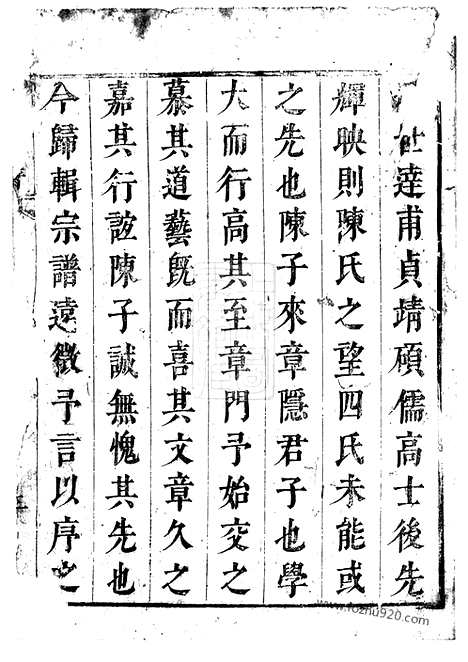 達甫貞靖碩儒高士後先
輝映則陳氏之望四氏未能或
之先也陳子來章隱君子也學
大而行高其至章門予始交之
慕其道藝既而喜其文章久之
嘉其行誼陳子誠無愧其先也
今歸輯宗譜遠徵予言以序之
www.fozhu920.com